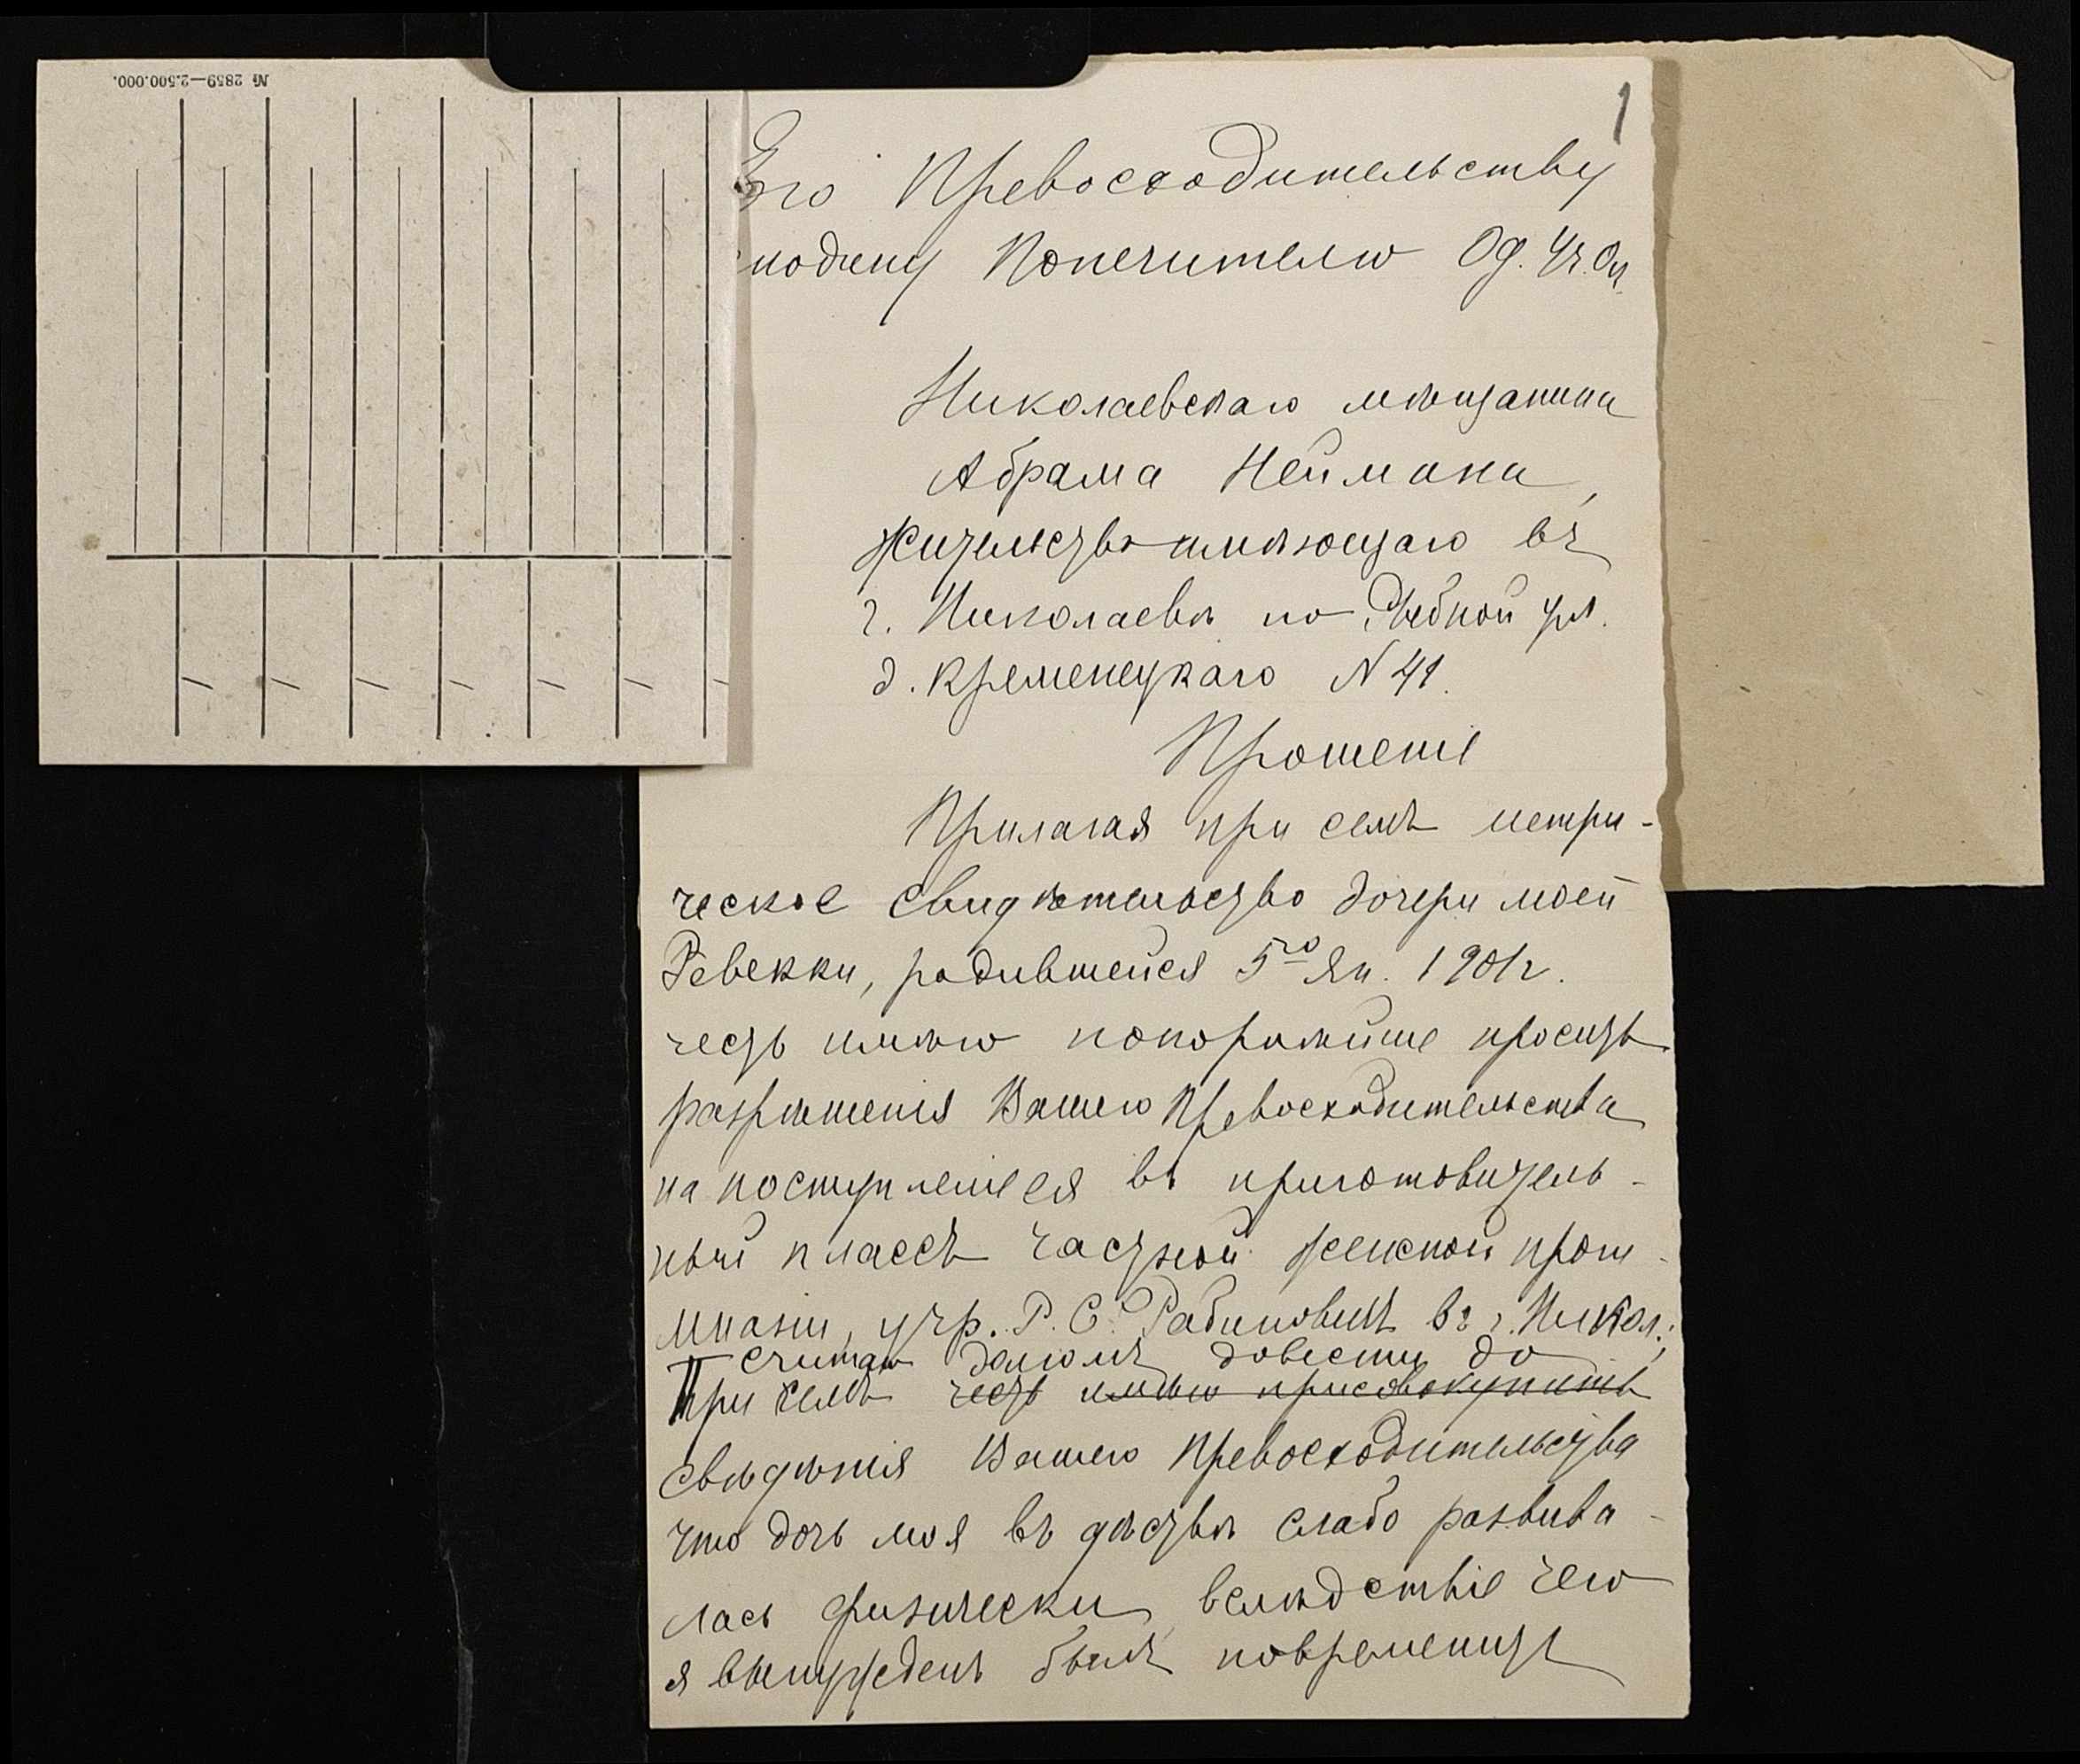 № 2859—2.500.000.
1
Его Превосходительству
сподину Попечителю Од. Уч. Ок.
Николаевскаго мѣщанина
Абрама Неймана,
жительство имѣющаго въ
г. Николаевѣ по Рыбной ул.
д. Кременецкаго N 41.
Прошеніе
Прилагая при семъ метри-
ческое свидѣтельство дочери моей
Ревекки, родившейся 5го Ян. 1901 г.
честь имѣю покорнѣйше просить
разрѣшенія Вашего Превосходительства
на поступленіе ея въ приготовитель-
ный классъ частной женской проги-
мназіи, учр. Р. С. Рабиновичъ въ г. Никол.;
считаю долгомъ довести до
При семъ честь имѣю присовокупить
свѣдѣнія Вашего Превосходительства
что дочь моя въ дѣтствѣ слабо развива-
лась физически, вслѣдствіе чего
я вынужденъ былъ повременить